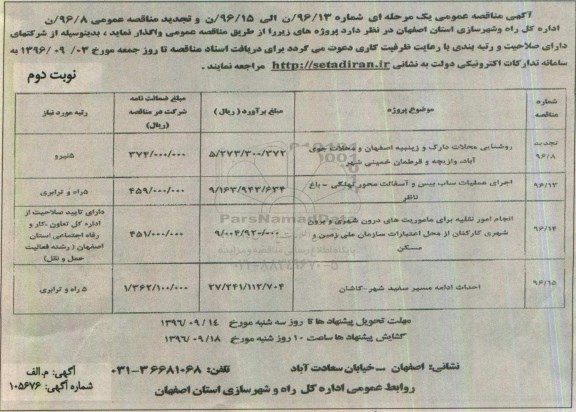 آگهی مناقصه عمومی یک مرحله ای شماره ۹۶/۱۳/ن الی ۹۶/۱۵/ن و تجدید مناقصه عمومی ۹۶/۸/ن
اداره کل راه وشهرسازی استان اصفهان در نظر دارد پروژه های زیررا از طریق مناقصه عمومی واگذار نماید ، بدینوسیله از شرکتهای
دارای صلاحیت و رتبه بندی با رعایت ظرفیت کاری دعوت می گردد برای دریافت اسناد مناقصه تا روز جمعه مورخ ۰۳/ ۰۹/ ۱۳۹۶ به
سامانه تدارکات الکترونیکی دولت به نشانی http://setadiran.ir مراجعه نمایند .
نوبت دوم
شماره مناقصه
موضوع پروژه
مبلغ برآورد ( ریال )
مبلغ ضمانت نامه شرکت در مناقصه (ریال)
رتبه مورد نیاز
تجدید ۹۶/۸
روشنایی محلات دارک و زینبیه اصفهان و محلات جوی آباد، وازیچه و قرطمان خمینی شهر
۵/۲۷۳/۳۰۰/۳۷۲
۳۷۳/۰۰۰/۰۰۰
۵نیرو
۹۶/۱۳
اجرای عملیات ساب بیس و آسفالت محور
۹/۱۶۳/۹۴۲/۶۳۴
۴۵۹/۰۰۰/۰۰۰
۵راه و ترابری
۹۶/۱۴
انجام امور نقلیه برای ماموریت های درون شهری و برون شهری کارکنان از محل اعتبارات سازمان ملی زمین و مسکن
۹/۰۰۴/۹۲۰/۰۰۰
۴۵۱/۰۰۰/۰۰۰
دارای تایید صلاحیت از اداره کل تعاون ،کار و رفاه اجتماعی استان اصفهان ( رشته فعالیت حمل و نقل)
۹۶/۱۵
احداث ادامه مسیر سفید شهر-کاشان
۲۷/۲۴۱/۱۱۲/۷۰۴
۱/۳۶۲/۱۰۰/۰۰۰
۵ راه و ترابری
مهلت تحویل پیشنهاد ها تا روز سه شنبه مورخ ۱۴/ ۰۹/ ۱۳۹۶
گشایش پیشنهاد ها ساعت ۱۰ روز شنبه مورخ ۱۸/ ۰۹/ ۱۳۹۶
نشانی: اصفهان – خیابان سعادت آباد تلفن: ۳۶۶۸۱۰۶۸-۰۳۱
روابط عمومی اداره کل راه و شهرسازی استان اصفهان
آگهی: م.الف
شماره آگهی: ۱۰۵۶۷۶